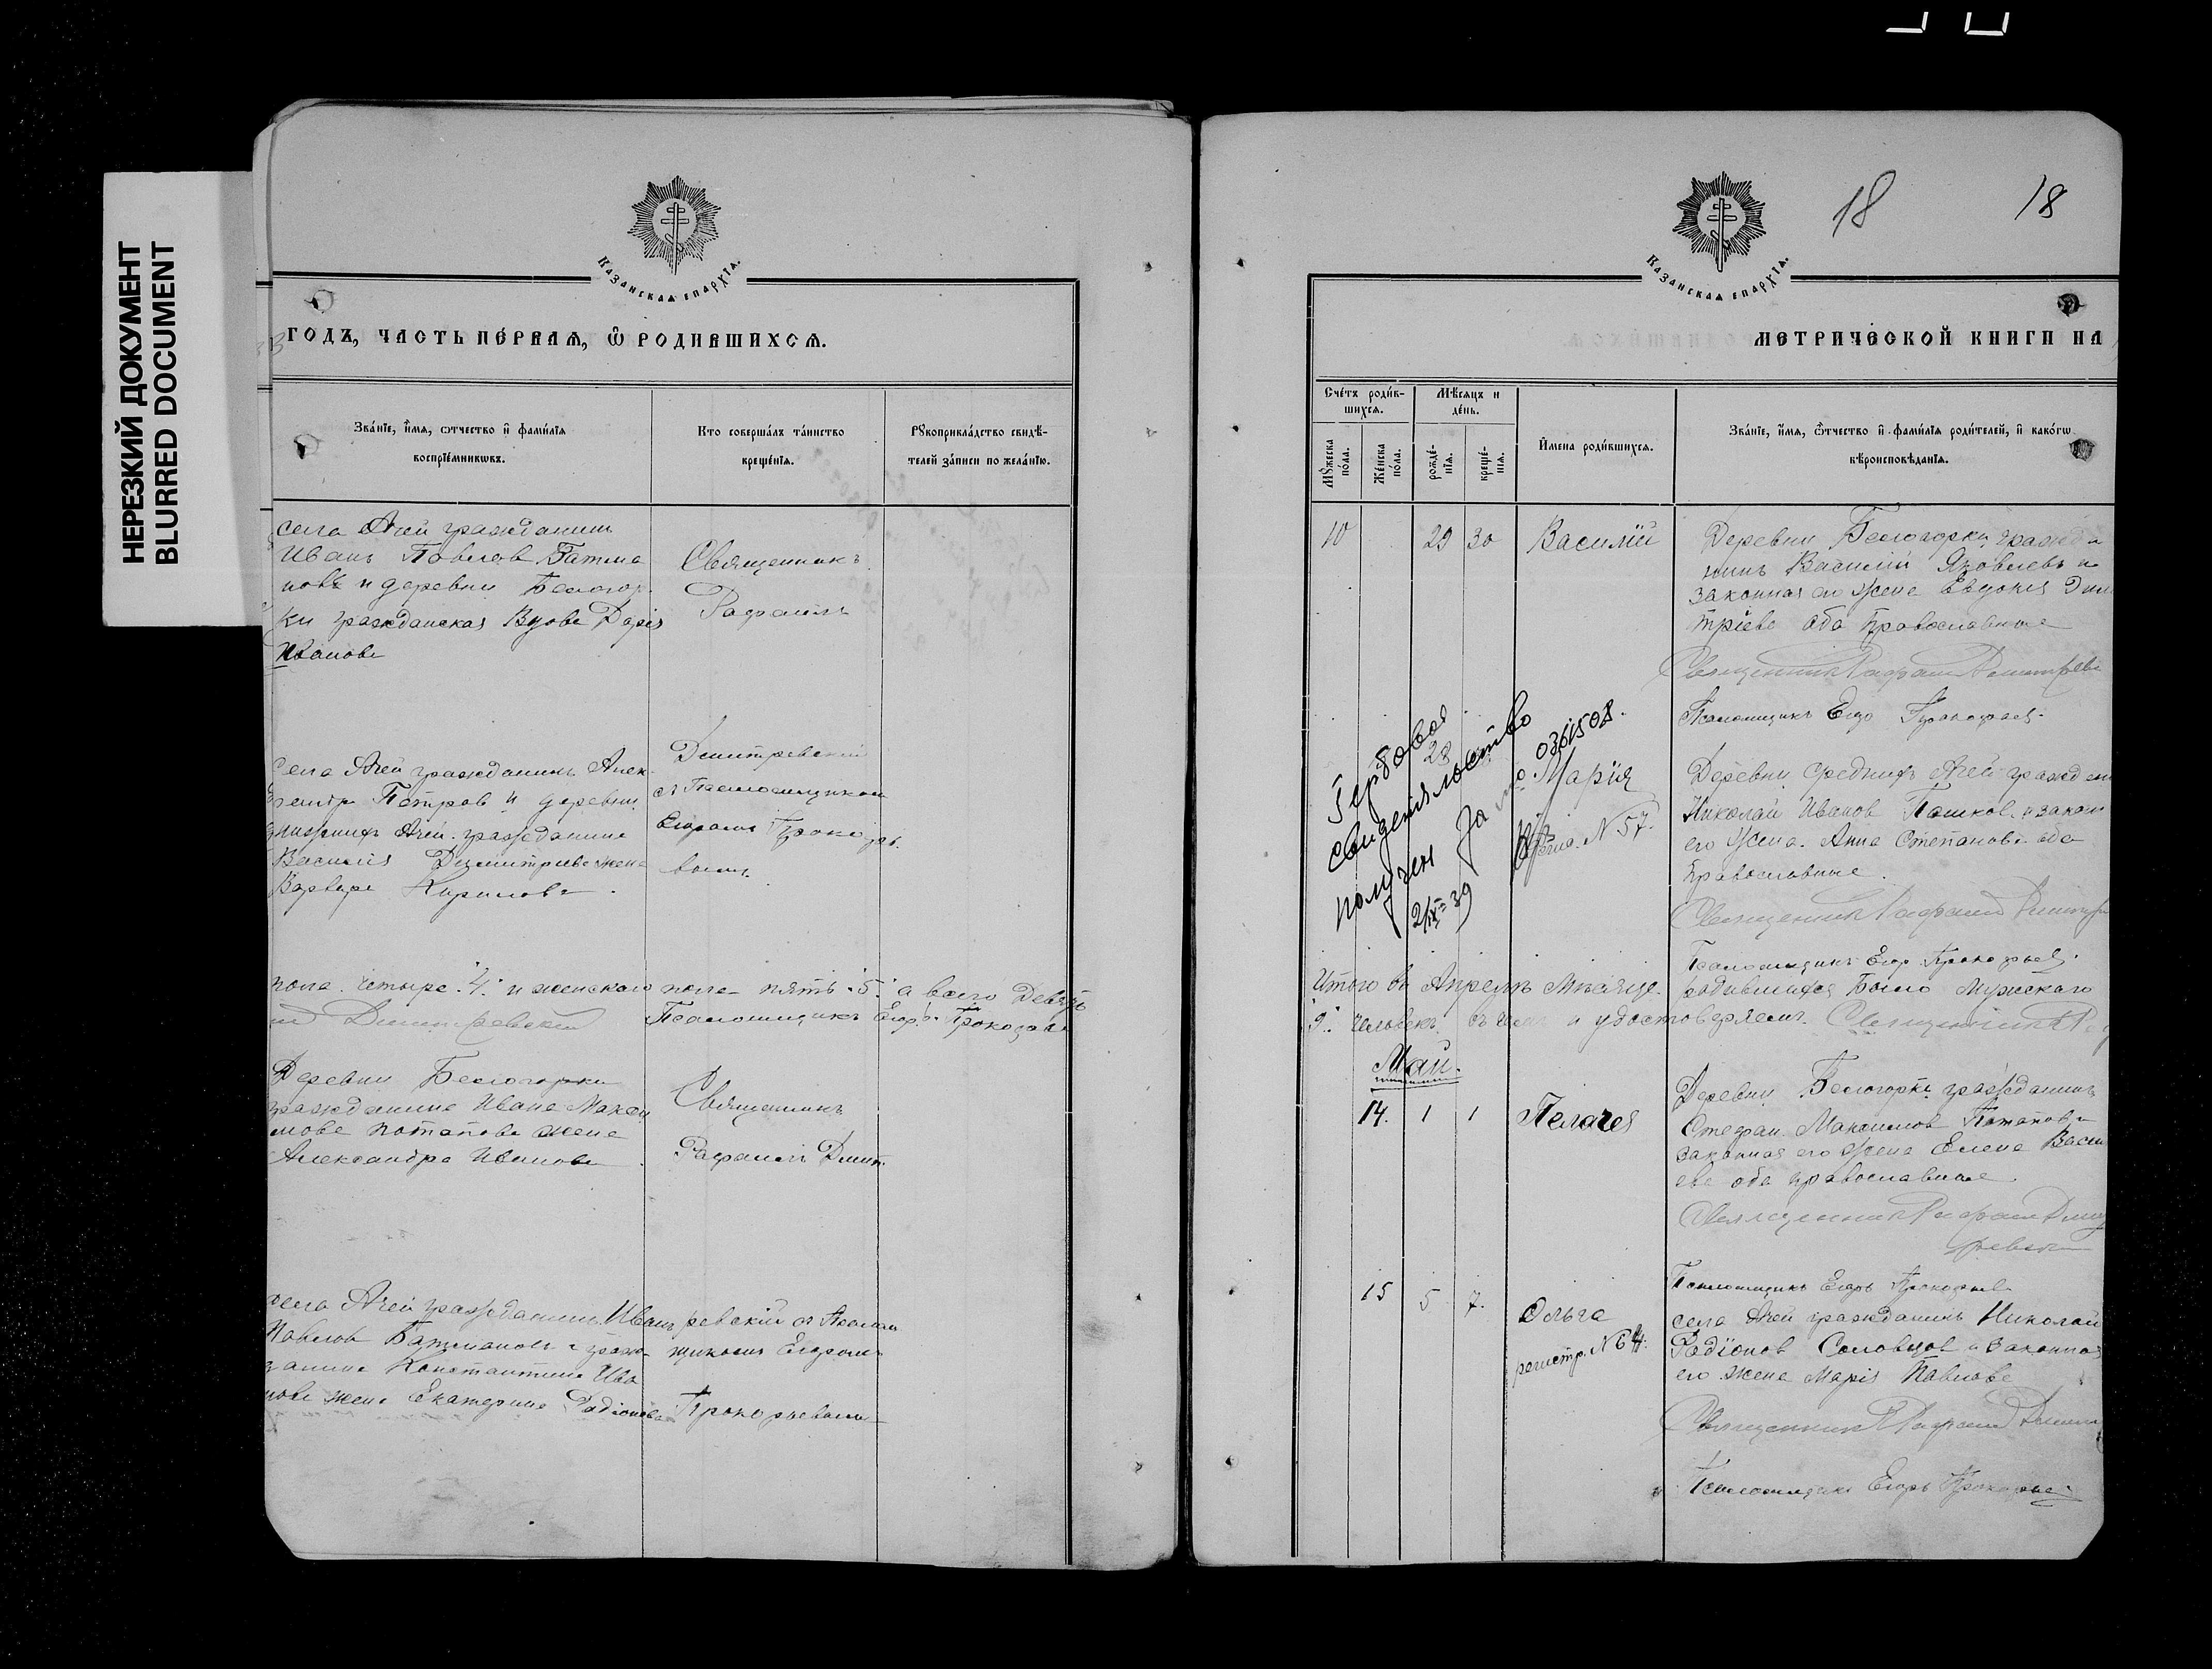 НЕРЕЗКИЙ ДОКУМЕНТ
BLURRED DOCUMENT
КАЗАНСКАЯ ЕПАРХІА.
ГОДЪ, ЧАСТЬ ПЕРВАЯ, Ѿ РОДИВШИХСЯ.
Званіе, имя, отчество и фамилія
воспріемниковъ.
Кто совершалъ таинство
крещенія.
Рукоприкладство свидѣ-
телей записи по желанію.
села Ачей гражданинъ
Иванъ Павлов
новъ и деревни Белогор
ки гражданская Вдова Дарія
Иванова
Священникъ
Рафаилъ
села Ачей гражданинъ Алек
Петров и деревни
Ачей гражданина
Василія Димитріева жена
Варвара Кирилова.
Дмитревскій
съ Псаломщикомъ
Егоромъ Прокофь
вымъ
пола четыре "4" и женскаго пола пять "5" а всего Девять
Дмитревскій Псаломщикъ Егор Прокофьев
Деревни Белогорки
гражданина Ивана Макси
мова Потапова жена
Александра Иванова.
Священникъ
Рафаилъ Дмит
села Ачей гражданин Иванъ
Павлов Батманов и граж
данина Константина Ива
нова жена Екатерина Радіонова
ревскій съ Псалом
щикомъ Егоромъ
Прокофьевымъ
КАЗАНСКАЯ ЕПАРХІА.
18 18
МЕТРИЧЕСКОЙ КНИГИ НА
Счетъ родив-
шихся.
Мѣсяцъ и
день.
Мужеска
пола.
Женска
пола.
рожде-
нія.
креще-
нія.
Имена родившихся.
Званіе, имя, отчество и фамилія родителей, и какого
вѣроисповѣданія.
10 29 30 Василій
Деревни Белогорки гражда
нинъ Василій Яковлевъ и
законная его жена Евдокія Дим
тріева оба православные
Священникъ Рафаил Дмитрев
Псаломщикъ Егор Прокофьев
Гербовое
свидетельство
получен За № 0361508.
2/IX-39
28
Марія
№ 57.
Деревни Средних Ачей граждан
Николай Иванов Пашков и закон
его жена Анна Степанова оба
православные.
Священникъ Рафаил Дмитр
Псаломщикъ Егор Прокофьев.
Итого въ Апрелѣ Мѣсяце родившихся было мужскаго
"9" человекъ удостоверяемъ. Священникъ
Май.
14. 1 1 Пелагея
Деревни Белогорки гражданинъ
Стефан Максимов Потапов и
законная его жена Елена Васи
ева оба православные.
Священникъ Рафаил Дмит
ревск
Псаломщикъ Егоръ Прокофьев
15 5 7. Ольга
регистр. № 64.
села Ачей гражданинъ Николай
Радіонов Соловцов и законная
его жена Марія Павлова
Священникъ Рафаил Дмит
Псаломщикъ Егоръ Прокофьев